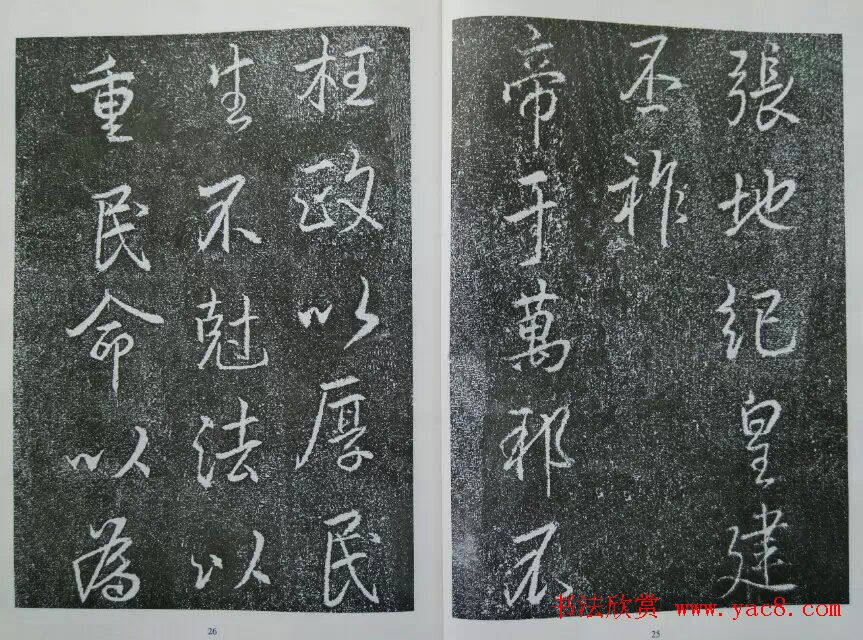 張地紀皇建
丕祚
帝于萬邦不
枉政以厚民
生不尅法以
重民命以為
书法欣赏 www.yac8.com
25
26